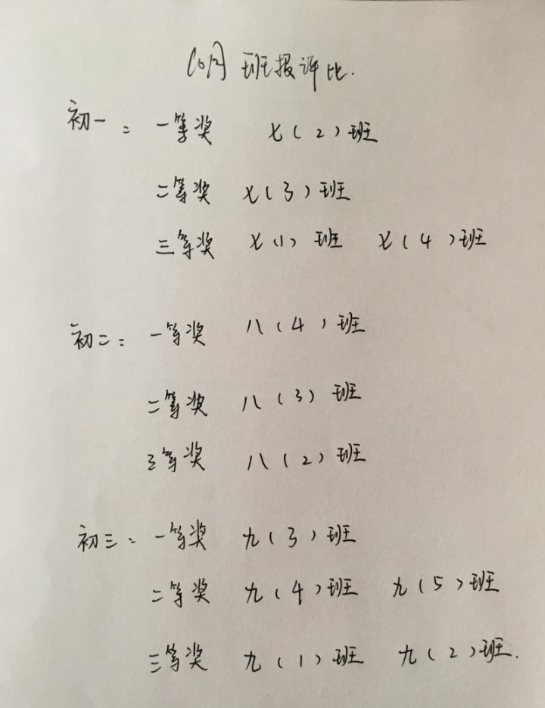 10月 班报评比.
初一: 一等奖 七(2)班
二等奖 七(3)班
三等奖 七(1)班 七(4)班
初二: 一等奖 八(4)班
二等奖 八(3)班
三等奖 八(2)班
初三: 一等奖 九(3)班
二等奖 九(4)班 九(5)班
三等奖 九(1)班 九(2)班.